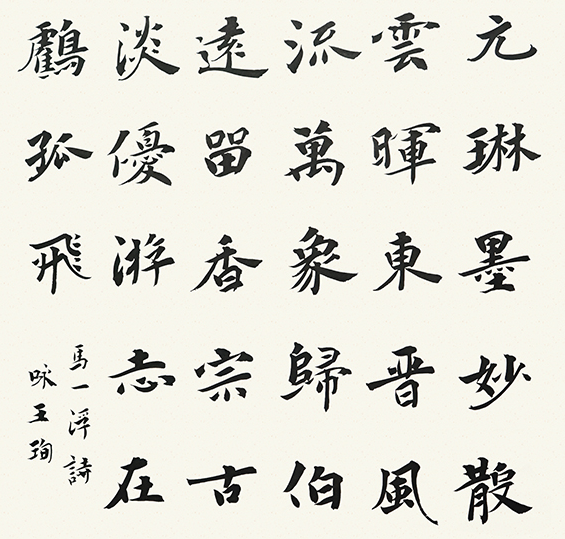 元琳墨妙散
雲暉東晋風
流萬象歸伯
遠留香宗古
淡優游志在
鸖孤飛
馬一浮詩
咏王珣